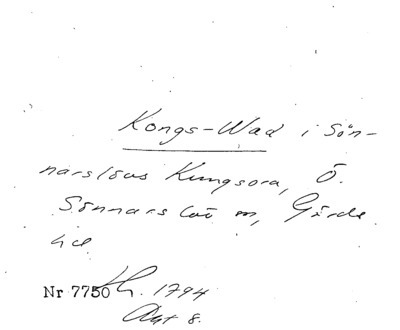 Kongs-Wad i Sön-
narslövs Kungsora, Ö.
Sönnarslöv m, Gärds
hd
Nr 7750 Lh. 1794
Akt 8.